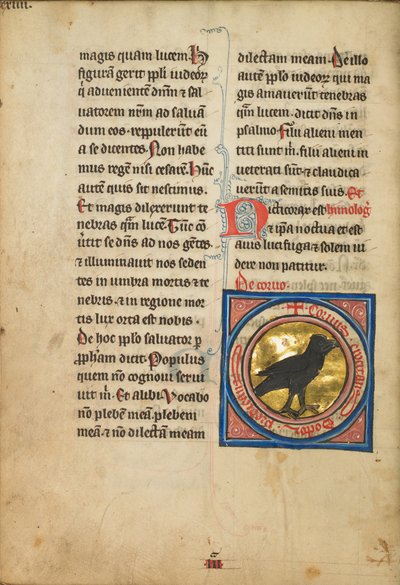 xxiiii.
magis quam lucem. H
figurā gerit ppl̄i iudeoꝝ
q̇ aduenientē dn̄m & sal
uatorem nr̄m ad saluan
dum eos. reppulerūt eū
a se dicentes. Non habe
mus regem nisi cesarē. Tūc
autem quis sit nescimus.
Et magis dilexerunt te
nebras quā lucē. Tūc cō
u̇tit se dn̄s ad nos gētes.
& illuminauit nos seden
tes in umbra mortis & te
nebris. & in regione mor
tis lux orta est nobis.
De hoc pp̄lo saluator ꝑ
ꝓpham dicit. Populus
quem nō cognoui serui
uit m̄. Et alibi. Vocabo
nō plebem meā. plebem
meā. & nō dilectā meam
dilectam meam. De illo
autē pp̄lo iudeoꝝ qui ma
gis amauerūt tenebras
quā lucem. dicit dn̄s in
psalmo. Filii alieni men
titi sunt m̄. filii alieni in
ueterati sūt. & claudica
uerūt a semitis suis. Et
Nicticorax est
& ip̄a noctua et est
auis lucifuga & solem ui
dere non patitur.
De coruo.
Coruus